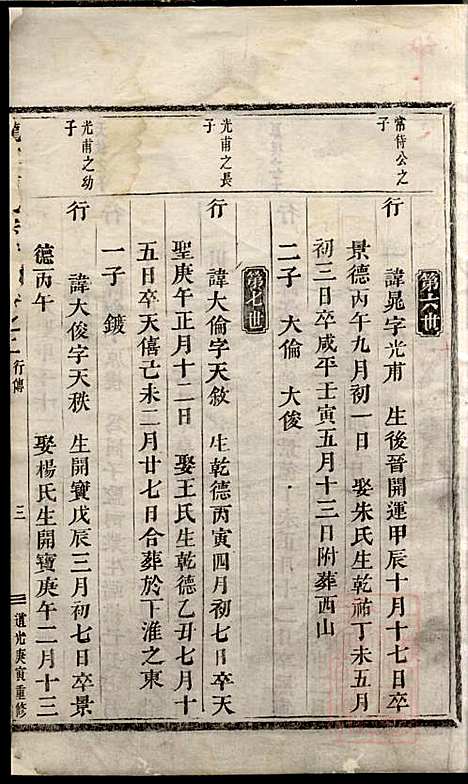 第六世
常侍公之子
行 諱晁字光甫 生後晉開運甲辰十月十七日卒
景德丙午九月初一日 娶朱氏生乾祐丁未五月
初三日卒咸平壬寅五月十三日附葬西山
二子 大倫 大俊
第七世
光甫之長子
行 諱大倫字天敘 生乾德丙寅四月初七日卒天
聖庚午正月十二日 娶王氏生乾德乙丑七月十
五日卒天僖己未二月廿七日合葬於下淮之東
一子 鍍
光甫之幼子
行 諱大俊字天秩 生開寶戊辰三月初七日卒景
德丙午 娶楊氏生開寶庚午二月十三
行傳 三 道光庚寅重修